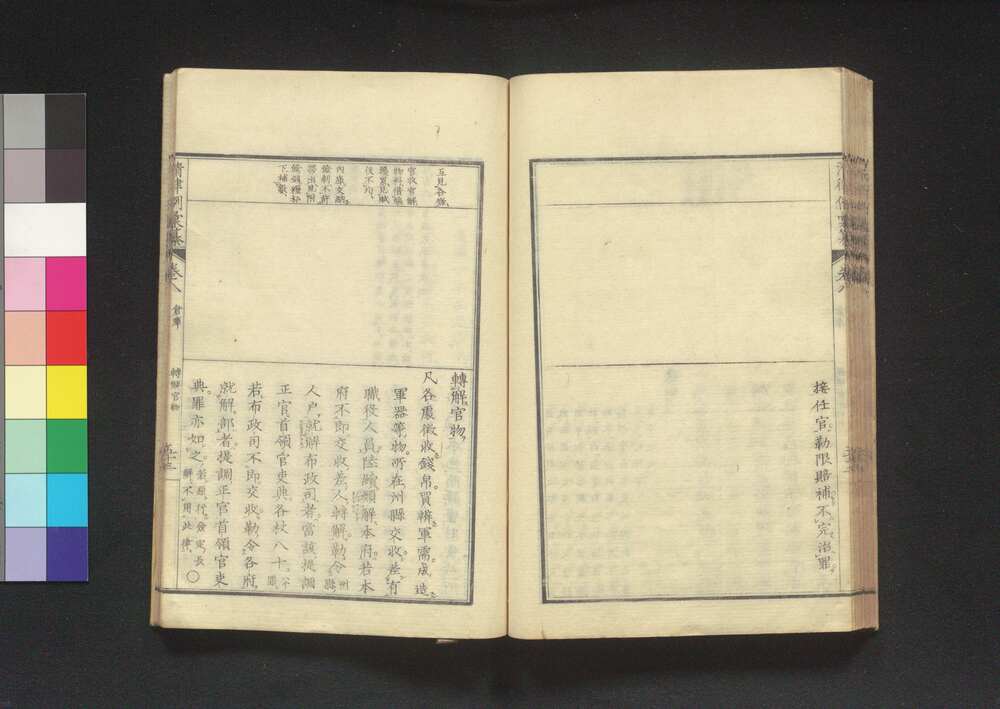 接任官。勒限賠補不完治罪。
互見各條。
官收官解
物料情編
後不均。
內庫交納
下補載。
轉解官物
凡各處徵收錢帛買辦軍需成造
軍器等物。所在州縣交收。差有
職役人員。陸續類解本府。若本
府不即交收差人轉解勒令州縣
人戶就解布政司者當該提調
正官首領官吏典各杖八十。
若布政司不即交收勒令各府
就解部者提調正官首領官吏
典罪亦如之。
解不用此律。〇
清律例彙纂
卷八
倉庫
轉解官物